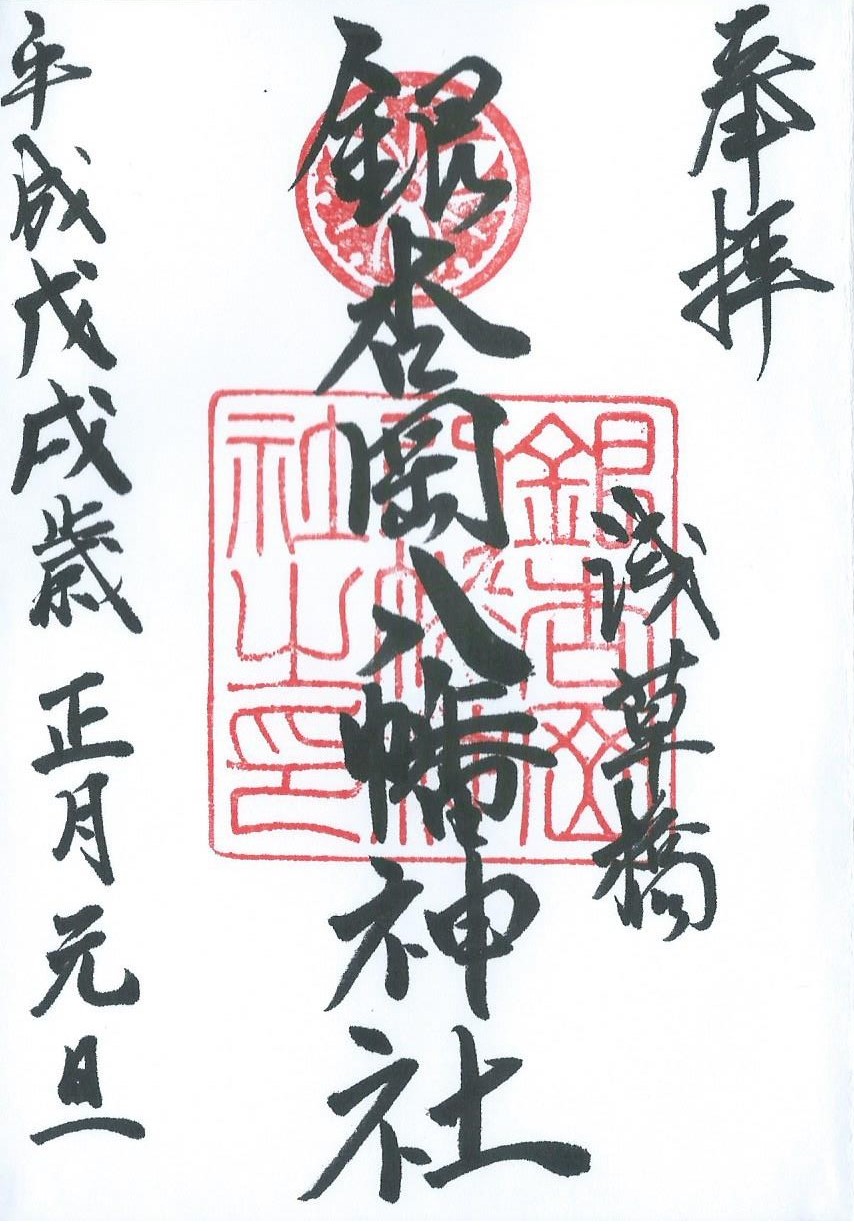 奉拝
浅草橋
銀杏岡八幡神社
銀杏岡
八幡神
社之印
平成戊戌歳 正月元旦